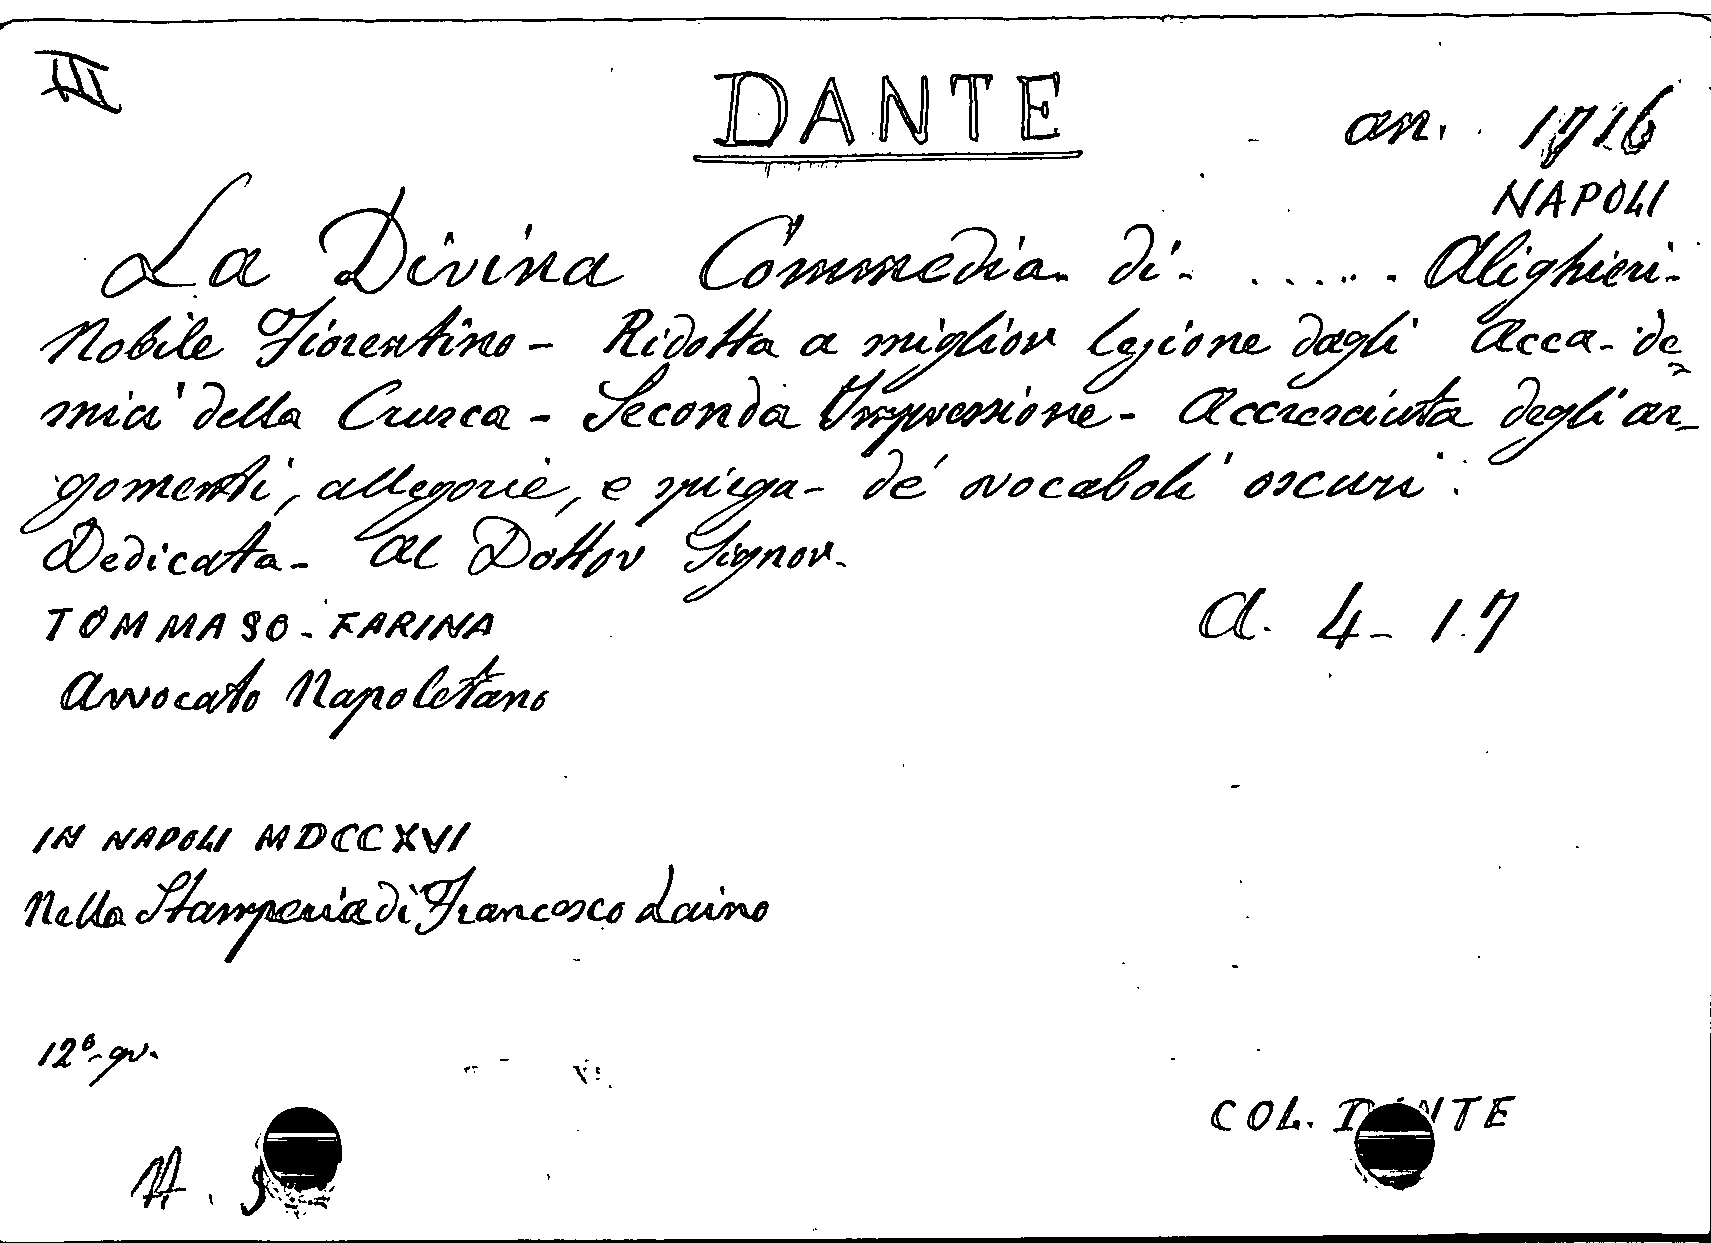 III
DANTE
an. 1716
NAPOLI
La Divina Commedia di ..... Alighieri-
Nobile Fiorentino - Ridotta a miglior lezione dagli Acca-de
mici della Crusca - Seconda Impressione - Accresciuta degli ar-
gomenti, allegorie, e spiega- dé vocaboli oscuri.
Dedicata - Al Dottor Signor.
TOMMASO - FARINA
Avvocato Napoletano
A. 4 - 17
IN NAPOLI MDCCXVI
Nella Stamperia di Francesco Laino
12°- gr.
COL. DANTE